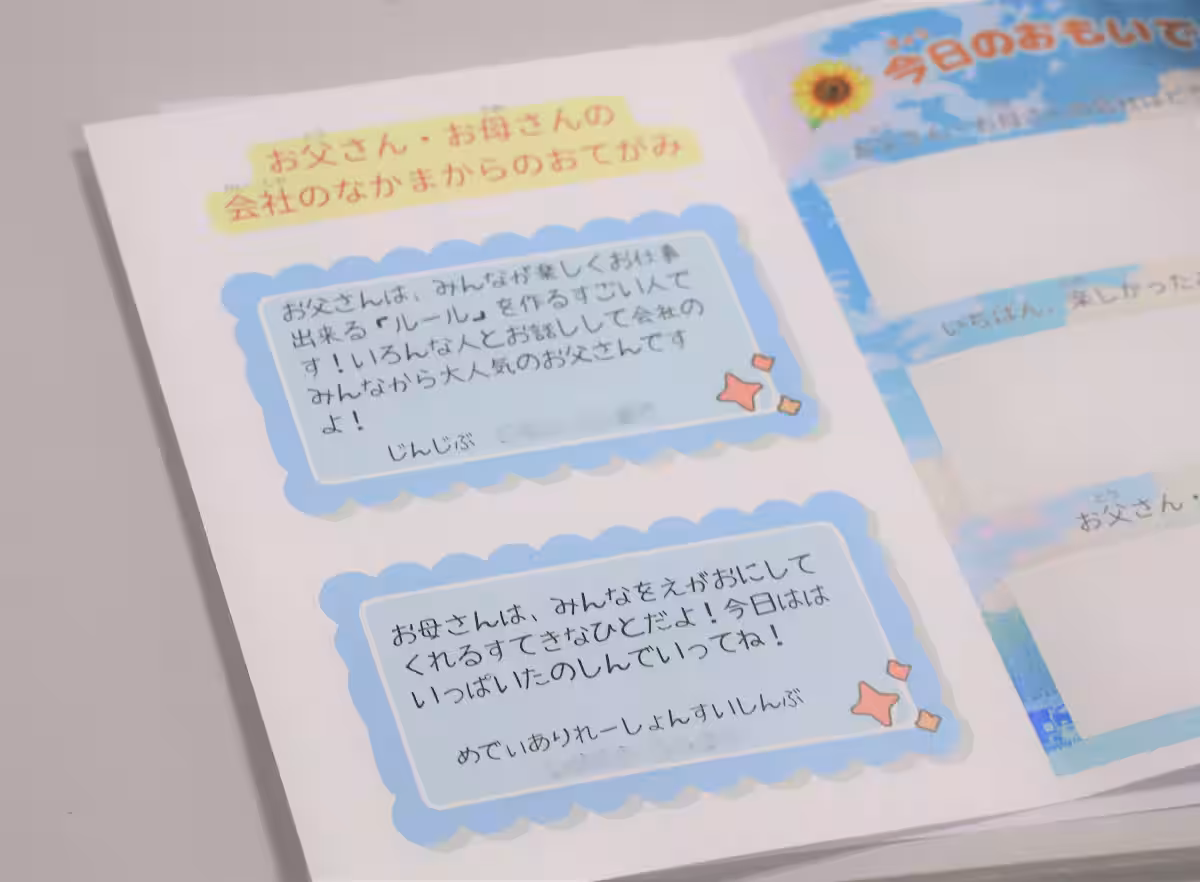 お父さん・お母さんの
会社のなかまからのおてがみ
お父さんは、みんなが楽しくお仕事
出来る『ルール』を作るすごい人で
す！いろんな人とお話しして会社の
みんなから大人気のお父さんです
よ！
じんじぶ
お母さんは、みんなをえがおにして
くれるすてきなひとだよ！今日はは
いっぱいたのしんでいってね！
めでぃありれーしょんすいしんぶ
きょう
今日のおもいで
いちばん、楽しかった
とう
お父さん・